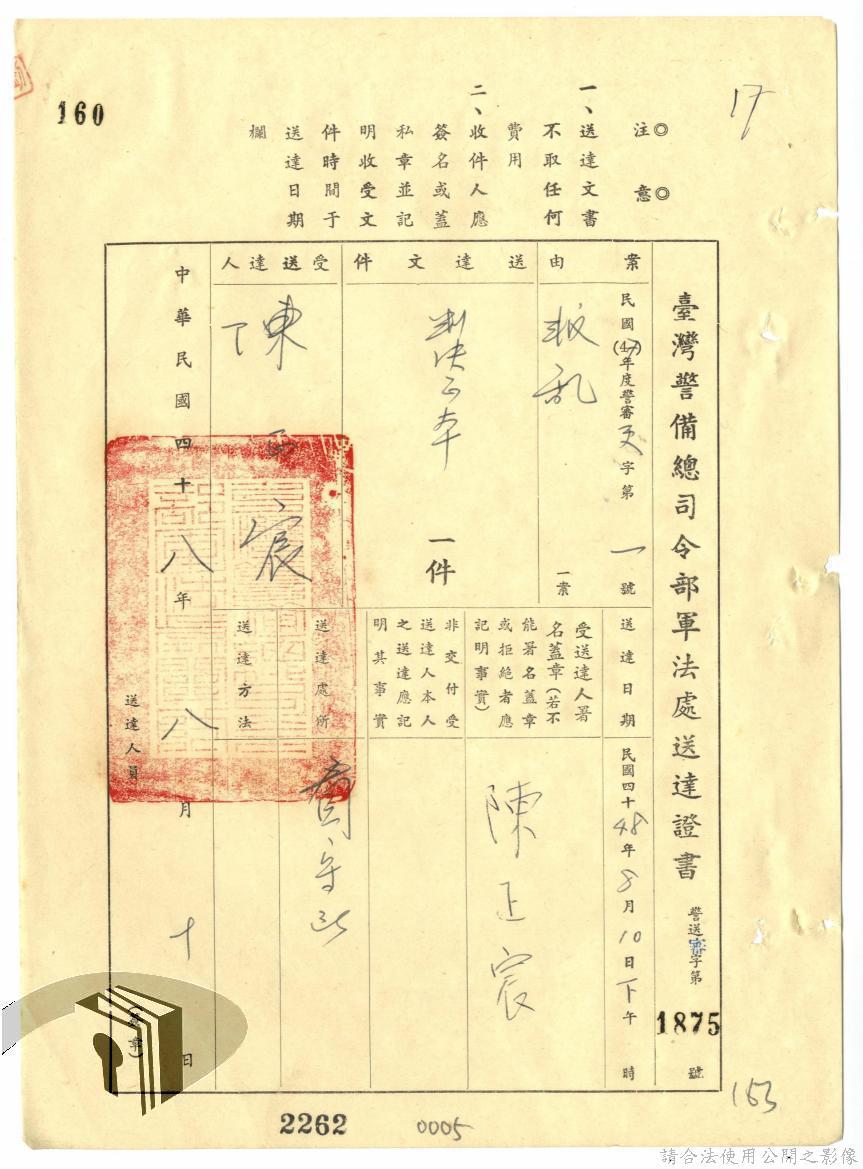 160
17
◎注意◎
一、送達文書
不取任何
費用
二、收件人應
簽名或蓋
私章並記
明收受文
件時間于
送達日期
欄
臺灣警備總司令部軍法處送達證書
警送審字第1875號
案由
民國(47)年度警審更字第一號
叛乱
一案
送達文件
判決正本
一件
受送達人
陳正宸
送達日期
民國四十48年8月10日下午時
受送達人署
名蓋章(若不
能署名蓋章
或拒絕者應
記明事實)
陳正宸
非交付受
送達人本人
之送達應記
明其事實
送達處所
送達方法
中華民國四十八年八月十日
送達人員
(蓋章)
2262
0005
163
請合法使用公開之影像